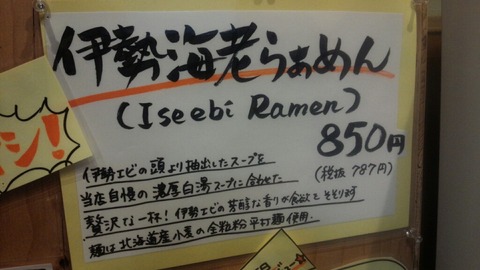 伊勢海老らぁめん
(Iseebi Ramen)
850円
(税抜 787円)
伊勢エビの頭より抽出したスープを
当店自慢の濃厚白湯スープに合わせた
贅沢な一杯!伊勢エビの芳醇な香りが食欲をそそります
麺は北海道産小麦の全粒粉平打麺使用.
シ!